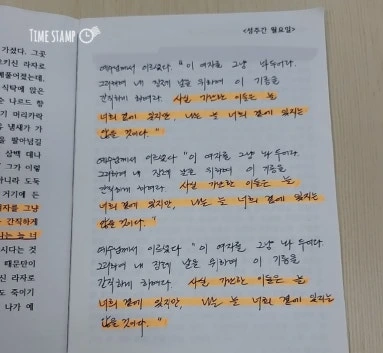 TIME STAMP
가셨다. 그곳
으키신 라자로
베풀어졌는데,
식탁에 앉은
는 나르드 향
기 머리카락
냄새가 가
을 팔아넘길
삼백 데나
그가 이렇
아니라 도둑
거기에 든
자를 그냥
간직하게
나는 늘 너
시다는 것
때문만이
신 라자로
도 죽이기
나가 예
<성주간 월요일>
예수님께서 이르셨다. "이 여자를 그냥 놔 두어라.
그리하여 내 장례 날을 위하여 이 기름을
간직하게 하여라. 사실 가난한 이들은 늘
너희 곁에 있지만, 나는 늘 너희 곁에 있지는
않을 것이다."
예수님께서 이르셨다. "이 여자를 그냥 놔 두어라.
그리하여 내 장례 날을 위하여 이 기름을
간직하게 하여라. 사실 가난한 이들은 늘
너희 곁에 있지만, 나는 늘 너희 곁에 있지는
않을 것이다."
예수님께서 이르셨다. "이 여자를 그냥 놔 두어라.
그리하여 내 장례 날을 위하여 이 기름을
간직하게 하여라. 사실 가난한 이들은 늘
너희 곁에 있지만, 나는 늘 너희 곁에 있지는
않을 것이다."